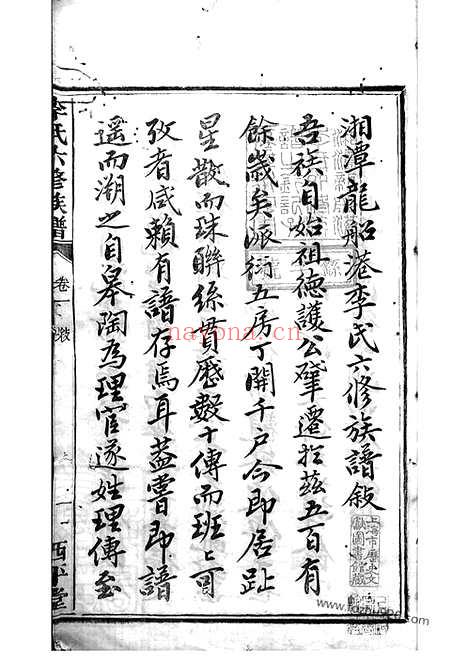 湘潭龍船港李氏六修族譜敍
吾族自始祖德護公肇遷於茲五百有
餘歲矣派衍五房丁開千户今即居趾
星散而珠聯絲貫歷數十傳而班﹅可
攷者咸賴有譜存焉耳蓋嘗即譜
遥而溯之自皋陶為理官遂姓理傳至
李氏六修族譜
卷一
敘
一
西平堂
上海市歷史文
獻圖書館藏
nayona.cn